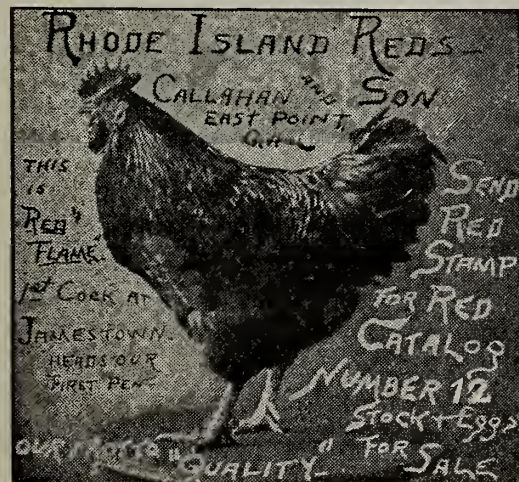 RHODE ISLAND REDS-
CALLAHAN AND SON
EAST POINT,
GA
THIS
IS
"RED
FLAME".
1st COCK AT
JAMESTOWN.
HEADS OUR
FIRST PEN
SEND
RED
STAMP
FOR RED
CATALOG
NUMBER 12
STOCK + Eggs
FOR
SALE
OUR MOTTO "QUALITY"